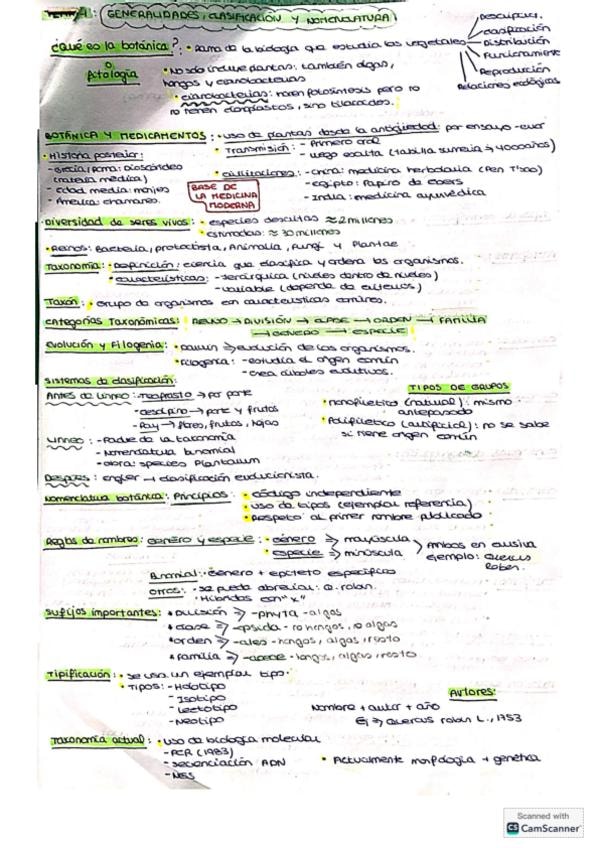 TEMA 1: GENERALIDADES, CLASIFICACIÓN Y NOMENCLATURA
¿Qué es la botánica?: • Rama de la biología que estudia los vegetales
Descripción
Clasificación
Distribución
Funcionamiento
Reproducción
Relaciones ecológicas
o
Fitología
• No solo incluye plantas: también algas,
hongos y cianobacterias
• Cianobacterias: hacen fotosíntesis pero no
tienen cloroplastos, sino tilacoides.
BOTÁNICA Y MEDICAMENTOS: • Uso de plantas desde la antigüedad: por ensayo-error
• Transmisión: - Primero oral
- Luego escrita (tablilla sumeria ≈ 4000 años)
• Historia posterior:
- Grecia/Roma: Dioscórides
(materia médica)
- Edad media: monjes
- América: chamanes.
BASE DE
LA MEDICINA
MODERNA
• Civilizaciones: - China: medicina herbolaria (Pen Tsao)
- Egipto: Papiro de Ebers
- India: medicina ayurvédica
Diversidad de seres vivos: • especies descritas ≈ 2 millones
• estimadas: ≈ 30 millones
• Reinos: Bacteria, protoctista, Animalia, Fungi y Plantae
Taxonomía: • Definición: ciencia que clasifica y ordena los organismos.
• Características: - Jerárquica (niveles dentro de niveles)
- Variable (depende de criterios)
Taxón: • Grupo de organismos con características comunes.
Categorías Taxonómicas: REINO → DIVISIÓN → CLASE → ORDEN → FAMILIA
→ GÉNERO → ESPECIE
Evolución y Filogenia: • Darwin ⇒ evolución de los organismos.
• Filogenia: - estudia el origen común
- crea árboles evolutivos.
Sistemas de clasificación:
Antes de Linneo: Teofrasto → por porte
- Cesalpino → porte y frutos
- Ray → flores, frutos, hojas
TIPOS DE GRUPOS
• Monofilético (natural): mismo
antepasado
• Polifilético (artificial): no se sabe
si tiene origen común
Linneo: - Padre de la taxonomía
- Nomenclatura binomial
- Obra: Species Plantarum
Después: Engler → clasificación evolucionista.
Nomenclatura botánica: Principios: • código independiente
• uso de tipos (ejemplar referencia)
• Respeto al primer nombre publicado
Reglas de nombres: Género y especie: • Género ⇒ mayúscula
• Especie ⇒ minúscula
Ambos en cursiva
ejemplo: Quercus
Robur.
Binomial: Género + epíteto específico
Otros: - se puede abreviar: Q. robur.
- Híbridos con "x"
Sufijos importantes: • División ⇒ -phyta - algas
• Clase ⇒ -opsida - hongos, o algas
• Orden ⇒ -ales - hongos, algas, resto
• Familia ⇒ -aceae - hongos, algas, resto
Tipificación: • Se usa un ejemplar tipo.
• Tipos: - Holotipo
- Isotipo
- Lectotipo
- Neotipo
Autores:
Nombre + autor + año
Ej ⇒ Quercus robur L., 1753
Taxonomía actual: • uso de biología molecular
- PCR (1983)
- Secuenciación ADN
- NGS
• Actualmente morfología + genética
Scanned with
CS CamScanner